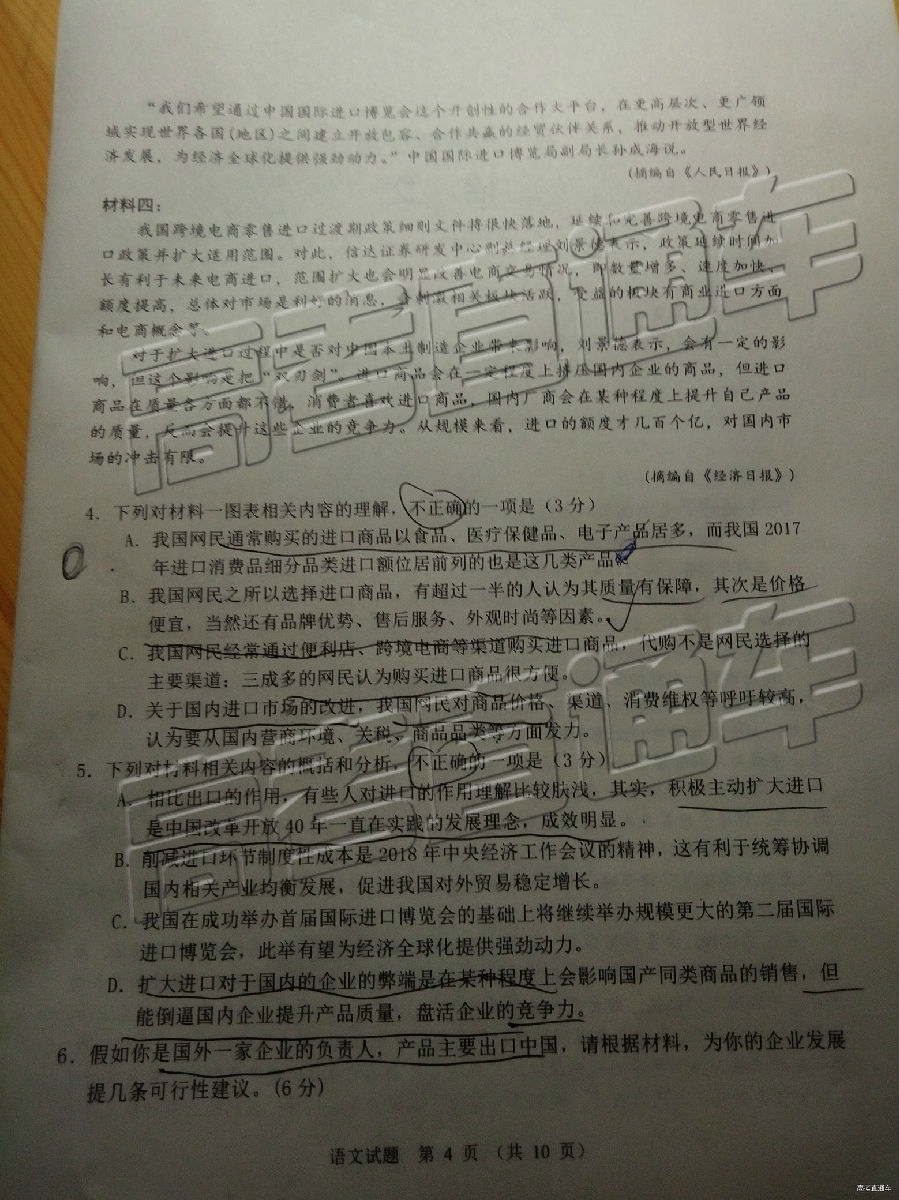 “我们希望通过中国国际进口博览会这个开创性的合作大平台，在更高层次、更广领
域实现世界各国(地区)之间建立开放包容、合作共赢的经贸伙伴关系，推动开放型世界经
济发展，为经济全球化提供强劲动力。”中国国际进口博览局副局长孙成海说。
(摘编自《人民日报》)
材料四：
我国跨境电商零售进口过渡期政策细则文件将很快落地，延续和完善跨境电商零售进
口政策并扩大适用范围。对此，信达证券研发中心副总经理刘景德表示，政策延续时间加
长有利于未来电商进口，范围扩大也会明显改善电商交易情况，即数量增多、速度加快、
额度提高，总体对市场是利好的消息，会刺激相关板块活跃，受益的板块有商业进口方面
和电商概念等。
对于扩大进口过程中是否对中国本土制造企业带来影响，刘景德表示，会有一定的影
响，但这个影响是把“双刃剑”。进口商品会在一定程度上挤压国内企业的商品，但进口
商品在质量各方面都不错，消费者喜欢进口商品，国内厂商会在某种程度上提升自己产品
的质量，反而会提升这些企业的竞争力。从规模来看，进口的额度才几百个亿，对国内市
场的冲击有限。
(摘编自《经济日报》)
4．下列对材料一图表相关内容的理解，不正确的一项是（3 分）
A．我国网民通常购买的进口商品以食品、医疗保健品、电子产品居多，而我国 2017
年进口消费品细分品类进口额位居前列的也是这几类产品。
B．我国网民之所以选择进口商品，有超过一半的人认为其质量有保障，其次是价格
便宜，当然还有品牌优势、售后服务、外观时尚等因素。
C．我国网民经常通过便利店、跨境电商等渠道购买进口商品，代购不是网民选择的
主要渠道；三成多的网民认为购买进口商品很方便。
D．关于国内进口市场的改进，我国网民对商品价格、渠道、消费维权等呼吁较高，
认为要从国内营商环境、关税、商品品类等方面发力。
5．下列对材料相关内容的概括和分析，不正确的一项是（3 分）
A．相比出口的作用，有些人对进口的作用理解比较肤浅，其实，积极主动扩大进口
是中国改革开放 40 年一直在实践的发展理念，成效明显。
B．削减进口环节制度性成本是 2018 年中央经济工作会议的精神，这有利于统筹协调
国内相关产业均衡发展，促进我国对外贸易稳定增长。
C．我国在成功举办首届国际进口博览会的基础上将继续举办规模更大的第二届国际
进口博览会，此举有望为经济全球化提供强劲动力。
D．扩大进口对于国内的企业的弊端是在某种程度上会影响国产同类商品的销售，但
能倒逼国内企业提升产品质量，盘活企业的竞争力。
6．假如你是国外一家企业的负责人，产品主要出口中国，请根据材料，为你的企业发展
提几条可行性建议。（6 分）
语文试题 第 4 页 （共 10 页）
高考直通车
高考直通车
高考直通车